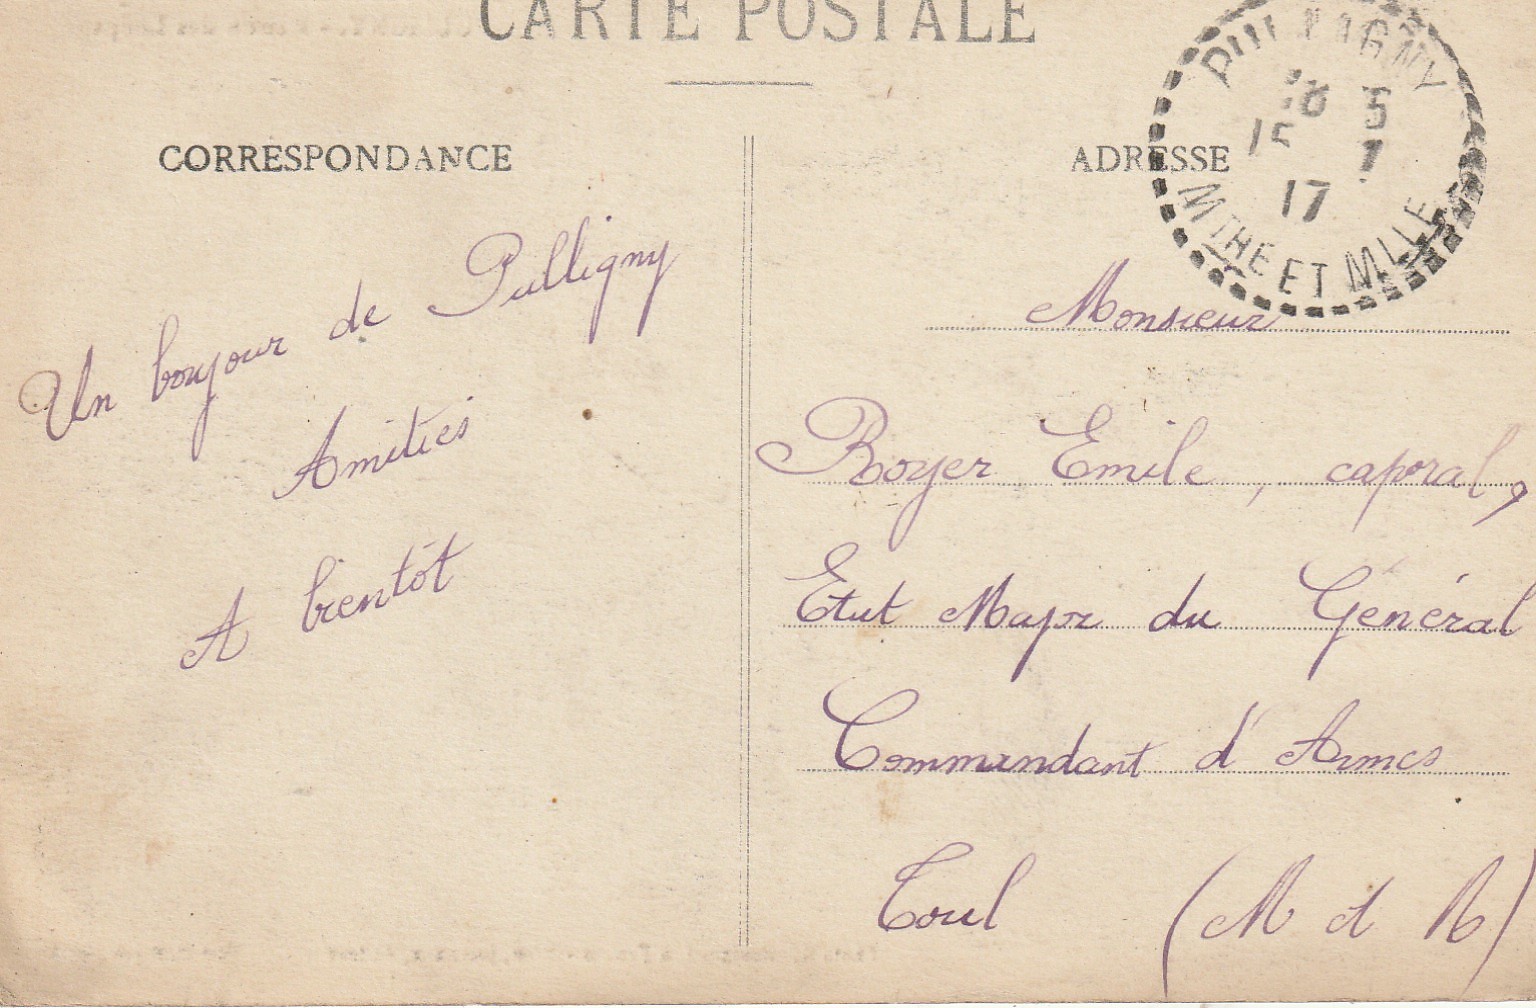 CARTE POSTALE
CORRESPONDANCE
ADRESSE
PULLIGNY
18 5
15 7
17
MTHE ET MLLE
Un bonjour de Pulligny
Amitiés
A bientôt
Monsieur
Royer Emile, caporal,
Etat Major du Général
Commandant d'Armes
Toul (M et M)